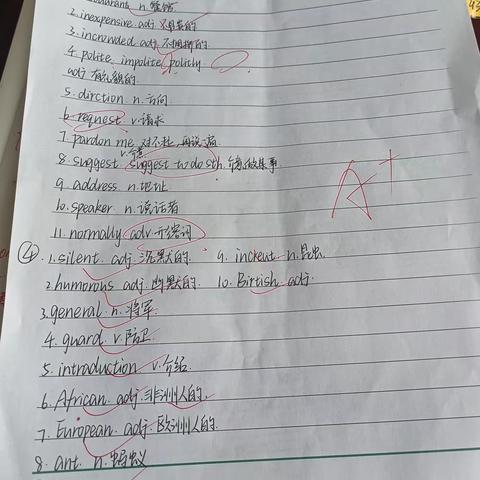 n. 餐馆
2. inexpensive adj 不贵的
3. increwded adj. 不拥挤的
4. polite impolite politly
adj 有礼貌的
5. dirction n. 方向
6. reqnest v. 请求
7. pardon me 对不起,再说一遍
v. 建议
8. suggest suggest to do sth 建议做某事.
9. address n. 地址
10. speaker n. 说话者
11. normally adv.
A+
④ 1. silent. adj. 沉默的. 9. n. 昆虫.
2. humorous adj. 幽默的. 10. Birtish adj.
3. general n. 将军.
4. guard v. 防卫.
5. introduction v. 介绍.
6. African adj. 非洲人的.
7. European adj. 欧洲人的.
8. ant. n. 蚂蚁